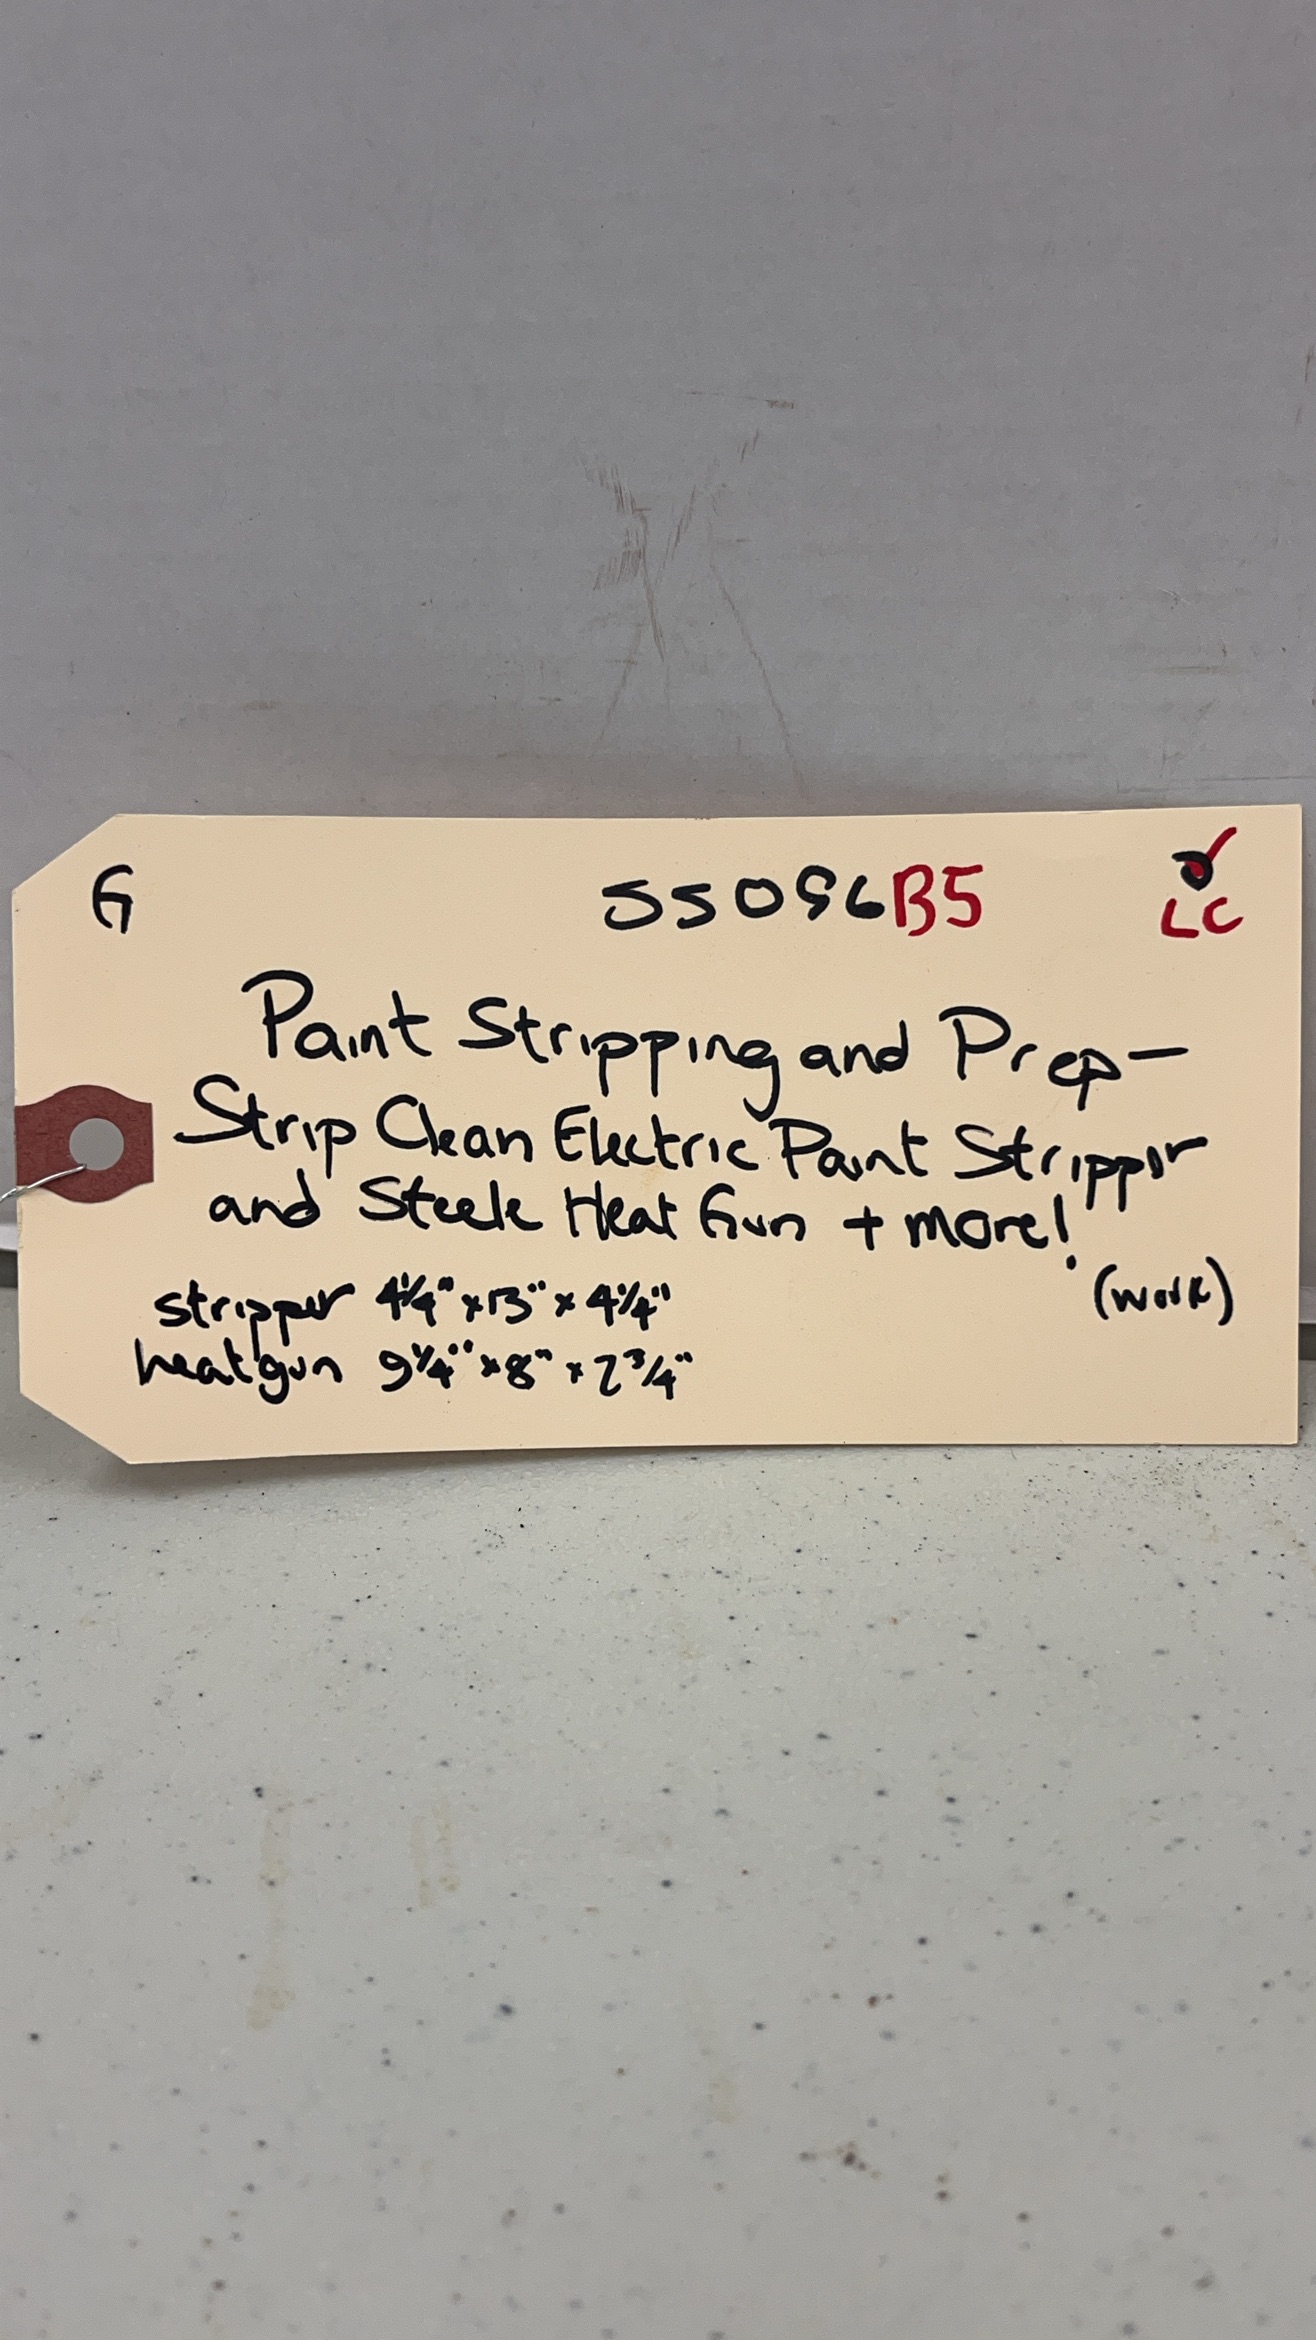 G 55096B5 LC
Paint Stripping and Prep-
Strip Clean Electric Paint Stripper
and Steele Heat Gun + more!
(work)
stripper 4 1/4" x 13" x 4 1/4"
heatgun 9 1/4" x 8" x 2 3/4"